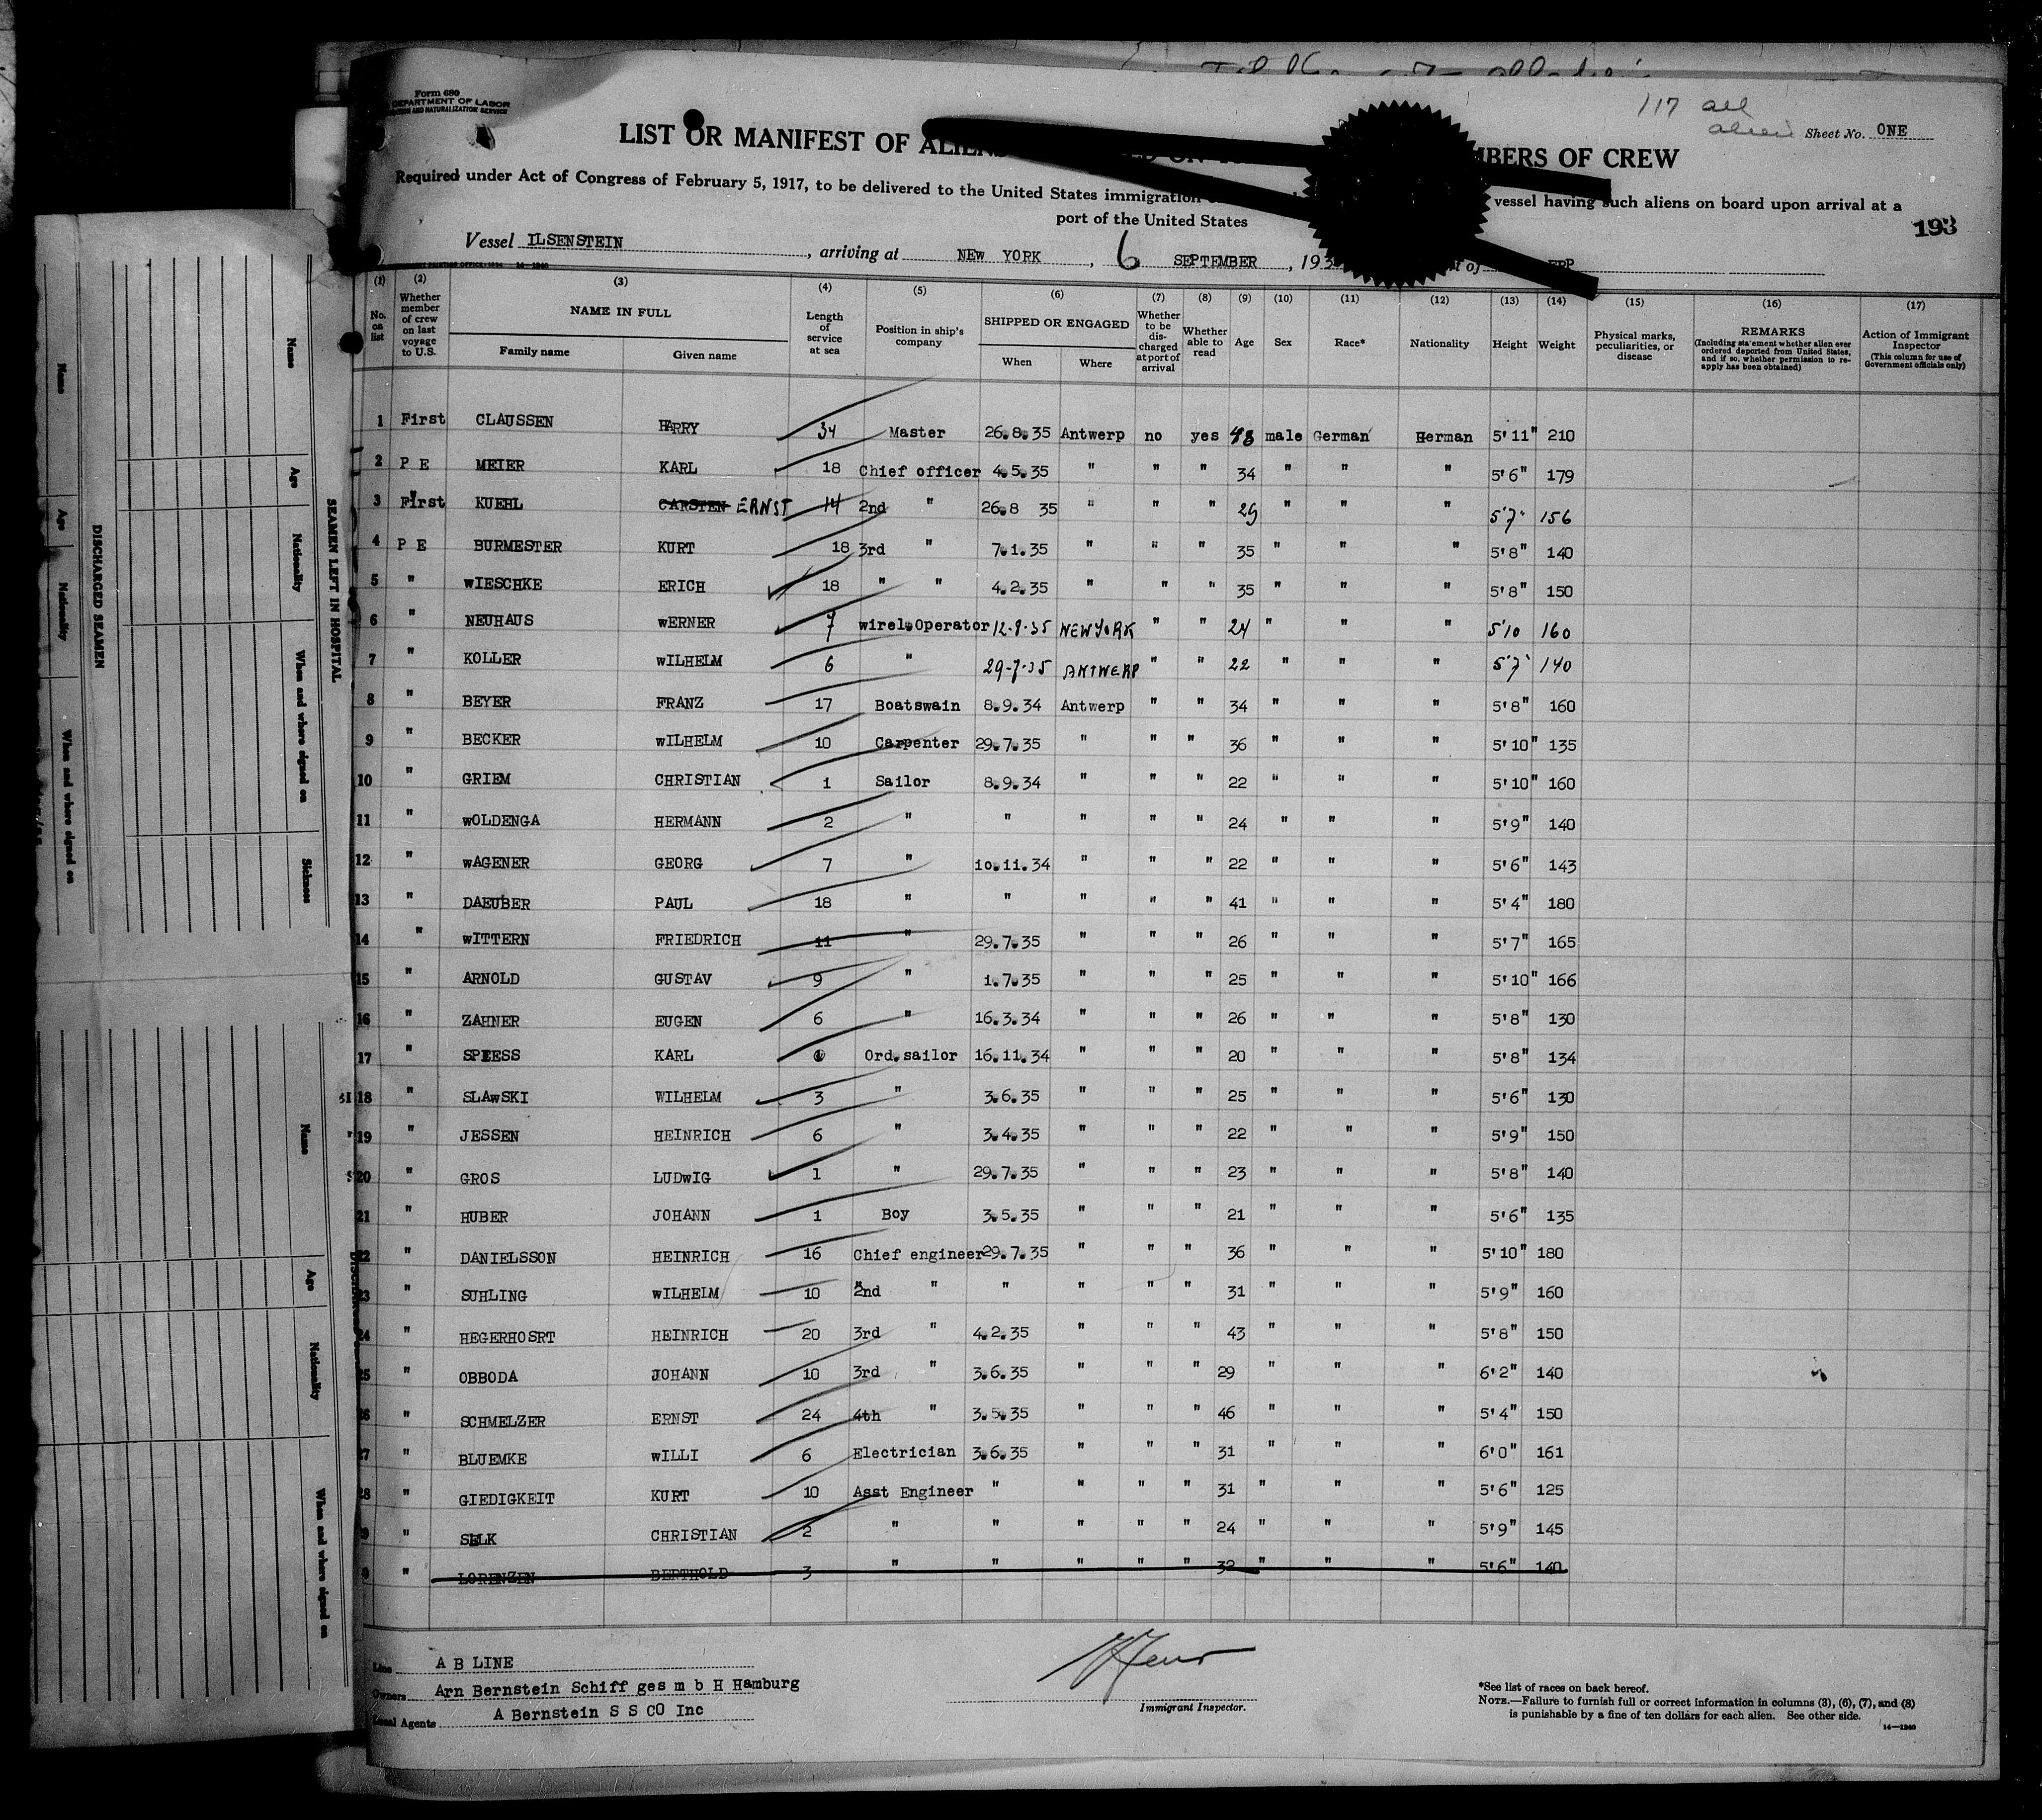 Form 680
DEPARTMENT OF LABOR
AND NATURALIZATION SERVICE
117 all
Sheet No. ONE
LIST OR MANIFEST OF ALIENS ON MEMBERS OF CREW
Required under Act of Congress of February 5, 1917, to be delivered to the United States immigration vessel having such aliens on board upon arrival at a
port of the United States
193
Vessel ILSENSTEIN , arriving at NEW YORK , 6 SEPTEMBER , 193 of
(1) (2) (3) (4) (5) (6) (7) (8) (9) (10) (11) (12) (13) (14) (15) (16) (17)
No. on list Whether member of crew on last voyage to U.S. NAME IN FULL Family name Given name Length of service at sea Position in ship's company SHIPPED OR ENGAGED When Where Whether to be discharged at port of arrival Whether able to read Age Sex Race* Nationality Height Weight Physical marks, peculiarities, or disease REMARKS (Including statement whether alien ever ordered deported from United States, and if so, whether permission to re-apply has been obtained) Action of Immigrant Inspector (This column for use of Government officials only)
1 First CLAUSSEN HARRY 34 Master 26.8.35 Antwerp no yes 48 male German German 5'11" 210
2 P E MEIER KARL 18 Chief officer 4.5.35 " " " 34 " " " 5'6" 179
3 First KUEHL CARSTEN ERNST 14 2nd " 26.8 35 " " " 29 " " " 5'7" 156
4 P E BURMESTER KURT 18 3rd " 7.1.35 " " " 35 " " " 5'8" 140
5 " WIESCHKE ERICH 18 " " 4.2.35 " " " 35 " " " 5'8" 150
6 " NEUHAUS WERNER 7 wirel.Operator 12-9-35 NEWYORK " " 24 " " " 5'10 160
7 " KOLLER WILHELM 6 " 29-7-35 ANTWERP " " 22 " " " 5'7" 140
8 " BEYER FRANZ 17 Boatswain 8.9.34 Antwerp " " 34 " " " 5'8" 160
9 " BECKER WILHELM 10 Carpenter 29.7.35 " " " 36 " " " 5'10" 135
10 " GRIEM CHRISTIAN 1 Sailor 8.9.34 " " " 22 " " " 5'10" 160
11 " WOLDENGA HERMANN 2 " " " " " 24 " " " 5'9" 140
12 " WAGENER GEORG 7 " 10.11.34 " " " 22 " " " 5'6" 143
13 " DAEUBER PAUL 18 " " " " " 41 " " " 5'4" 180
14 " WITTERN FRIEDRICH 11 " 29.7.35 " " " 26 " " " 5'7" 165
15 " ARNOLD GUSTAV 9 " 1.7.35 " " " 25 " " " 5'10" 166
16 " ZAHNER EUGEN 6 " 16.3.34 " " " 26 " " " 5'8" 130
17 " SPIESS KARL Ord.sailor 16.11.34 " " " 20 " " " 5'8" 134
18 " SLAWSKI WILHELM 3 " 3.6.35 " " " 25 " " " 5'6" 130
19 " JESSEN HEINRICH 6 " 3.4.35 " " " 22 " " " 5'9" 150
20 " GROS LUDWIG 1 " 29.7.35 " " " 23 " " " 5'8" 140
21 " HUBER JOHANN 1 Boy 3.5.35 " " " 21 " " " 5'6" 135
22 " DANIELSSON HEINRICH 16 Chief engineer 29.7.35 " " " 36 " " " 5'10" 180
23 " SUHLING WILHELM 10 2nd " " " " " 31 " " " 5'9" 160
24 " HEGERHOSRT HEINRICH 20 3rd " 4.2.35 " " " 43 " " " 5'8" 150
25 " OBBODA JOHANN 10 3rd " 3.6.35 " " " 29 " " " 6'2" 140
26 " SCHMELZER ERNST 24 4th " 3.5.35 " " " 46 " " " 5'4" 150
27 " BLUEMKE WILLI 6 Electrician 3.6.35 " " " 31 " " " 6'0" 161
28 " GIEDIGKEIT KURT 10 Asst Engineer " " " " 31 " " " 5'6" 125
9 " SELK CHRISTIAN 2 " " " " " 24 " " " 5'9" 145
" LORENZEN BERTHOLD 3 " " " " " 32 " " " 5'6" 140
Line A B LINE
Owners Arn Bernstein Schiff ges m b H Hamburg
Local Agents A Bernstein S S CO Inc
Immigrant Inspector.
*See list of races on back hereof.
NOTE.—Failure to furnish full or correct information in columns (3), (6), (7), and (8)
is punishable by a fine of ten dollars for each alien. See other side.
14—1240
SEAMEN LEFT IN HOSPITAL
Name Age Nationality When and where signed on Sickness
DISCHARGED SEAMEN
Name Age Nationality When and where signed on
Name Age Nationality When and where signed on